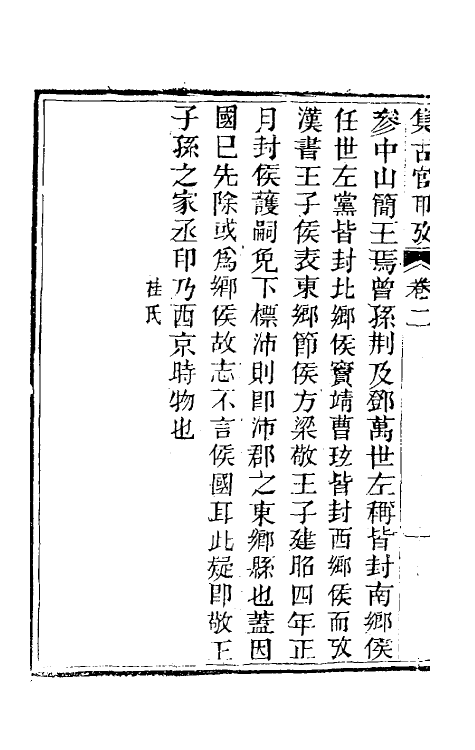 集古官印攷 卷二 一
參中山簡王焉曾孫荆及鄧萬世左稱皆封南鄉侯
任世左黨皆封北鄉侯竇靖曹玹皆封西鄉侯而攷
漢書王子侯表東鄉節侯方梁敬王子建昭四年正
月封侯護嗣免下標沛則卽沛郡之東鄉縣也蓋因
國已先除或爲鄉侯故志不言侯國耳此疑卽敬王
子孫之家丞印乃西京時物也
桂氏